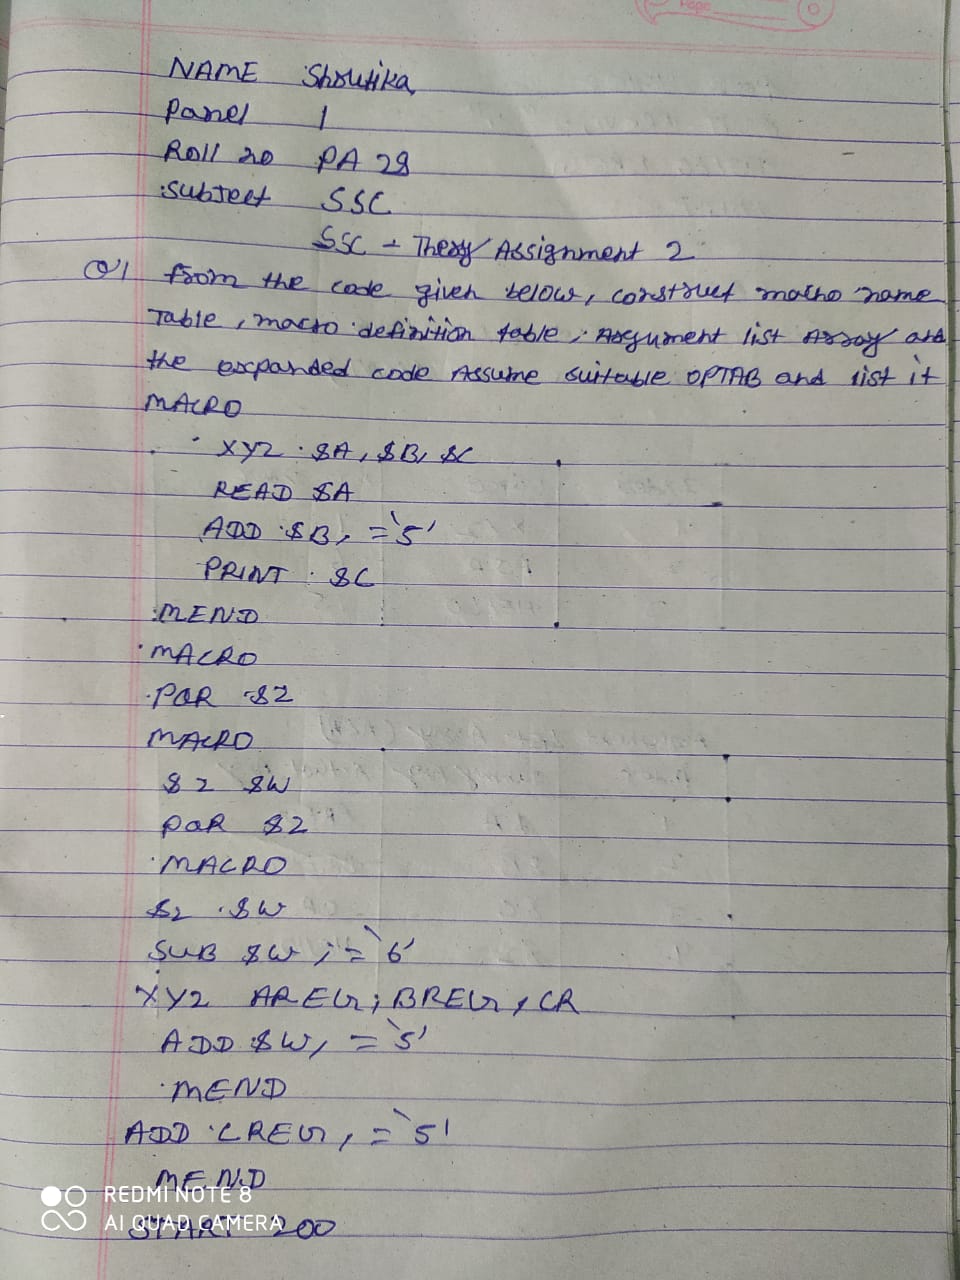 Page
NAME Shrutika
Panel 1
Roll no PA 28
Subject SSC
SSC - Theory Assignment 2
Q1 from the code given below, construct macro name
Table, macro definition table, Argument list Array and
the expanded code Assume suitable OPTAB and list it
MACRO
XYZ &A, &B, &C
READ &A
ADD &B, ='5'
PRINT &C
MEND
MACRO
PQR &Z
MACRO
&Z &W
PQR &Z
MACRO
&Z &W
SUB &W, ='6'
XYZ AREG, BREG, CR
ADD &W, ='5'
MEND
ADD CREG, ='5'
MEND
START 200
REDMI NOTE 8
AI QUAD CAMERA